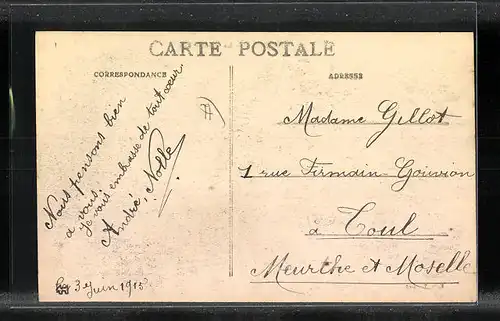 CARTE POSTALE
CORRESPONDANCE
ADRESSE
Nous pensons bien
a vous.
je vous embrasse de tout cœur
André, Nolle
3 Juin 1915
Madame Gillot
1 rue Firmain-Gouvion
a Toul
Meurthe et Moselle